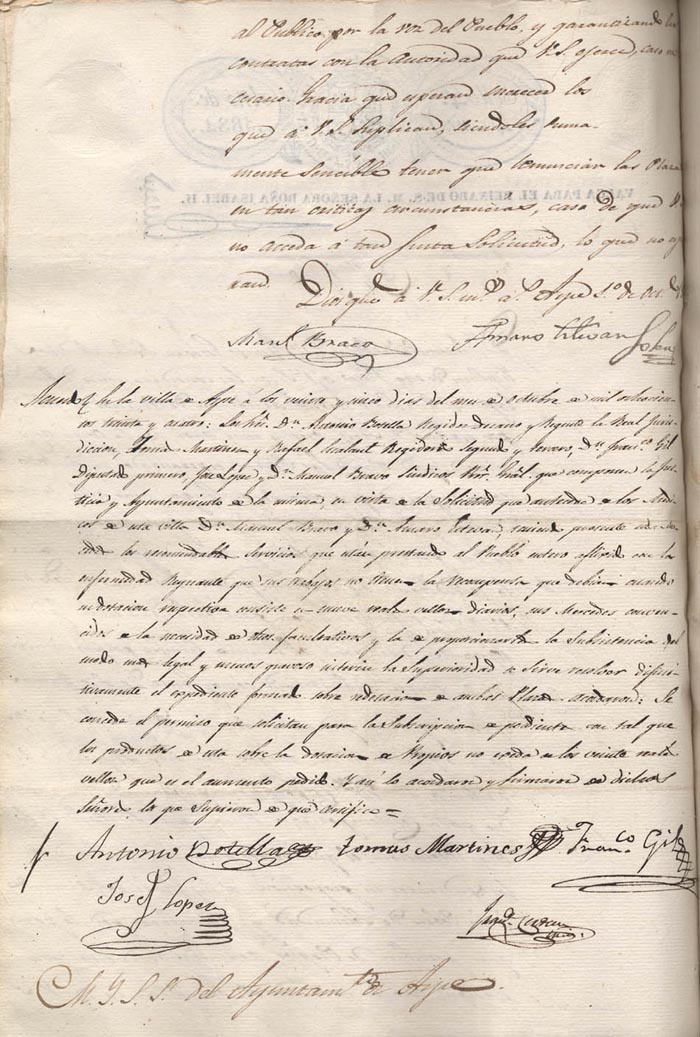 al Publico, por la voz del Pueblo, y garantizando las
contratas con la Autoridad que V.S. ejerce, caso ne
cesario. Gracia que esperan merecer los
que á V.S. Suplican, siendoles suma-
mente sensible tener que renunciar las Plazas
en tan criticas circunstancias, caso de que V.
no acceda á tan justa Solicitud, lo que no espe
ran.
Dios gue á V.S. m.s a.s Aspe de Oct.
Man.l Bravo Amaro Estevan
VALGA PARA EL REINADO DE S. M. LA SEÑORA DOÑA ISABEL II.
En la villa de Aspe á los veinte y cinco dias del mes de Octubre de mil ochocien
tos treinta y cuatro: Los S.res D.n Antonio Botella Regidor Decano y Regente la Real Juris
diccion, Tomas Martinez y Rafael Regidores segundo y tercero, D.n Fran.co Gil
Diputado primero, Jose Lopez y D.n Manuel Bravo Sindicos que componen la Justi
cia y Ayuntamiento de la misma, en vista de la Solicitud que antecede de los Medi
cos de esta villa D.n Manuel Bravo y D.n Amaro Estevan, teniendo presente
los recomendables servicios que estan prestando al Pueblo entero afligido con la
enfermedad Reynante que sus trabajos no tienen la recompensa que debian cuando
su dotacion respectiva consiste en nueve reales vellon diarios, sus Mercedes conven
cidos de la necesidad de otros facultativos y la de proporcionarles la Subsistencia del
modo mas legal y menos gravoso interin la Superioridad se sirve resolver difini
tivamente el espediente formado sobre redotacion de ambas Plazas acordaron: Se
concede el permiso que solicitan para la Subscripcion que pretenden con tal que
los productos de esta sobre la dotacion de Propios no exceda de los veinte reales
vellon que es el aumento pedido. Y asi lo acordaron y firmaron de dichos
Señores los que supieron de que certifico =
Antonio Botella Tomas Martines Fran.co Gil
Josef Lopez
M. Y. S. S. del Ayuntam.to de Aspe.